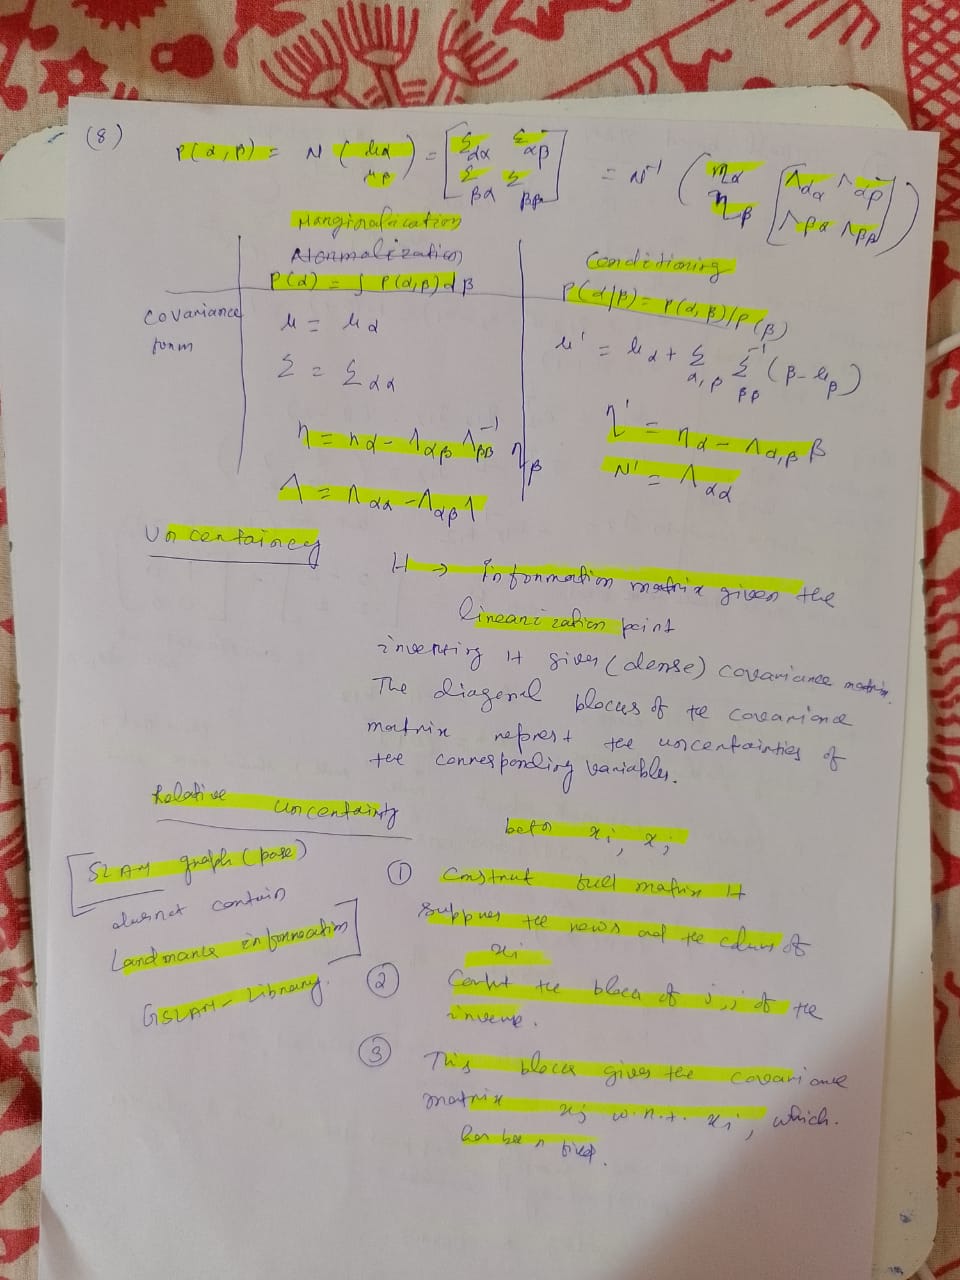 (8)
P(α,β) = N ( μα μβ ) = [ Σαα Σαβ Σβα Σββ ] = N⁻¹ ( ηα ηβ [ Λαα Λαβ Λβα Λββ ] )
Marginalization
Normalization
Conditioning
P(α) = ∫ P(α,β) dβ
P(α|β) = P(α,β)/P(β)
covariance form
μ = μα
μ' = μα + Σα,β Σββ⁻¹ (β - μβ)
Σ = Σαα
η = ηα - Λαβ Λββ⁻¹ ηβ
η' = ηα - Λα,β β
Λ = Λαα - Λαβ Λ
Λ' = Λαα
Uncertainey
H → Information matrix given the
linearization point
inverting H gives (dense) covariance matrix.
The diagonal blocks of the covariance
matrix represt the uncertainties of
the corresponding variables.
Relative uncertainty
betn xi, xj
SLAM graph (pose)
does not contain
Landmark information
GSLAM - Library.
① Construt full matrix H
suppres the rows and the colums of
xi
② the block of j,j of the
inverse.
③ This block gives the covariance
matrix xj w.r.t. xi, which.
has been fixed.